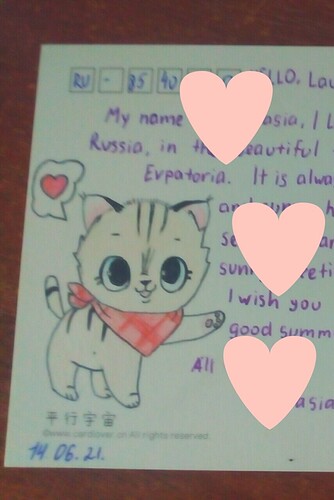 RU - 85 40
HELLO, Lau
My name asia, I L
Russia, in the beautiful
Evpatoria. It is alwa
and
sun
I wish you
good summ
All
asia
平行宇宙
©www.cardlover.cn All rights reserved.
14.06.21.